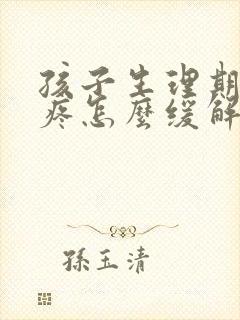 孩子生理期
疼怎麼緩解
孫玉清